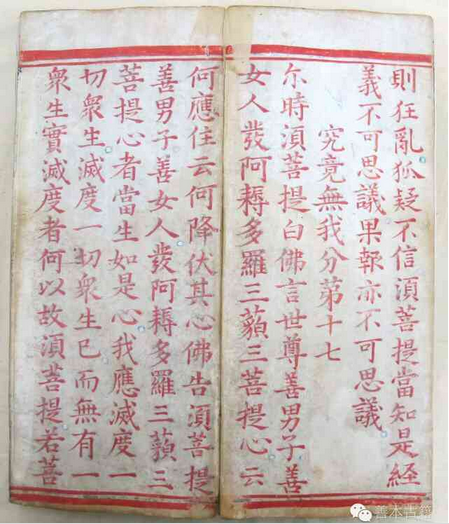 則狂亂狐疑不信湏菩提當知是經
義不可思議果報亦不可思議
究竟無我分第十七
尓時湏菩提白佛言世尊善男子善
女人發阿耨多羅三藐三菩提心云
何應住云何降伏其心佛告湏菩提
善男子善女人發阿耨多羅三藐三
菩提心者當生如是心我應滅度一
切衆生滅度一切衆生已而無有一
衆生實滅度者何以故湏菩提若菩
善本古籍